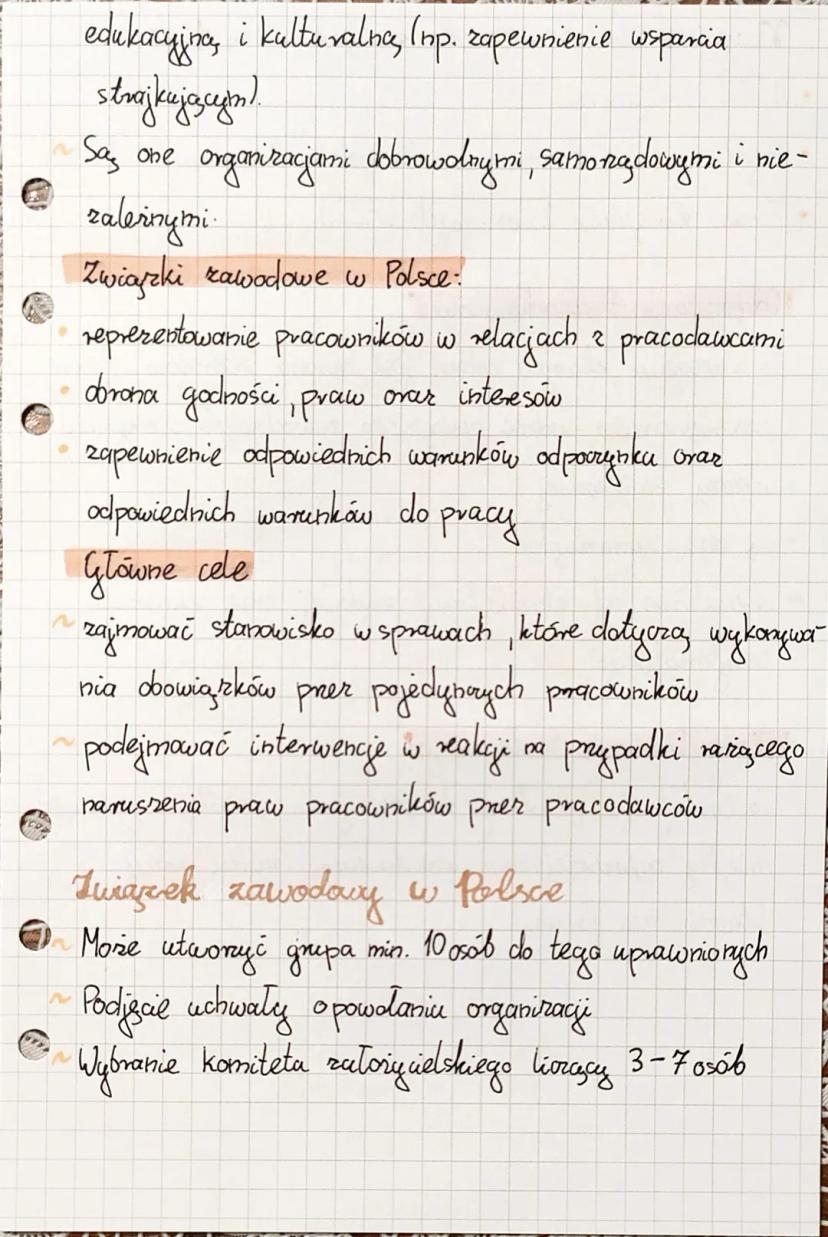 edukacyjną i kulturalną (np. zapewnienie wsparcia
strajkującym).
~ Są one organizacjami dobrowolnymi, samorządowymi i nie-
zależnymi.
Związki zawodowe w Polsce:
• reprezentowanie pracowników w relacjach z pracodawcami
• obrona godności, praw oraz interesów
• zapewnienie odpowiednich warunków odpoczynku oraz
odpowiednich warunków do pracy
Główne cele
~ zajmować stanowisko w sprawach, które dotyczą wykonywa-
nia obowiązków przez pojedynczych pracowników
~ podejmować interwencje w reakcji na przypadki rażącego
naruszenia praw pracowników przez pracodawców
Związek zawodowy w Polsce
~ Może utworzyć grupa min. 10 osób do tego uprawnionych
~ Podjęcie uchwały o powołaniu organizacji
~ Wybranie komiteta założycielskiego liczący 3-7 osób